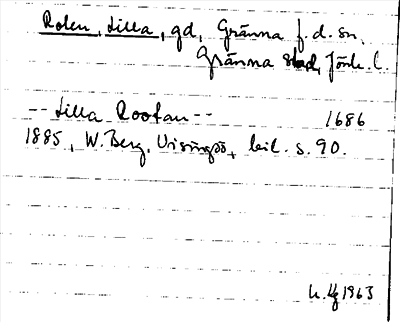 Rolen, Lilla, gd, Gränna f.d. sn,
Gränna stad, Jönk. l.
-- Lilla Rootan -- 1686
1885, W. Berg, Visingsö, bil. s. 90.
1963